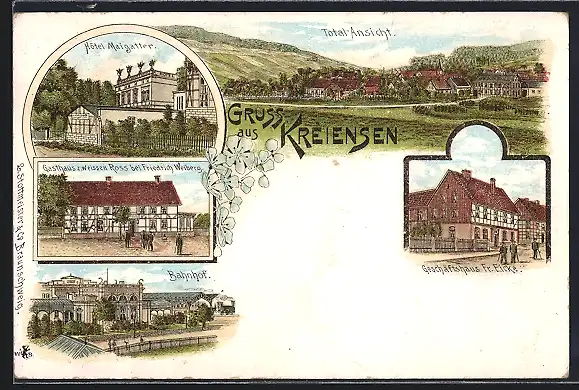 Hôtel Maigatter.
Total-Ansicht.
GRUSS
aus KREIENSEN
Gasthaus z. weissen Ross bei Friedrich Weiberg.
Geschäftshaus Fr. Eicke.
Bahnhof.
Braunschweig.